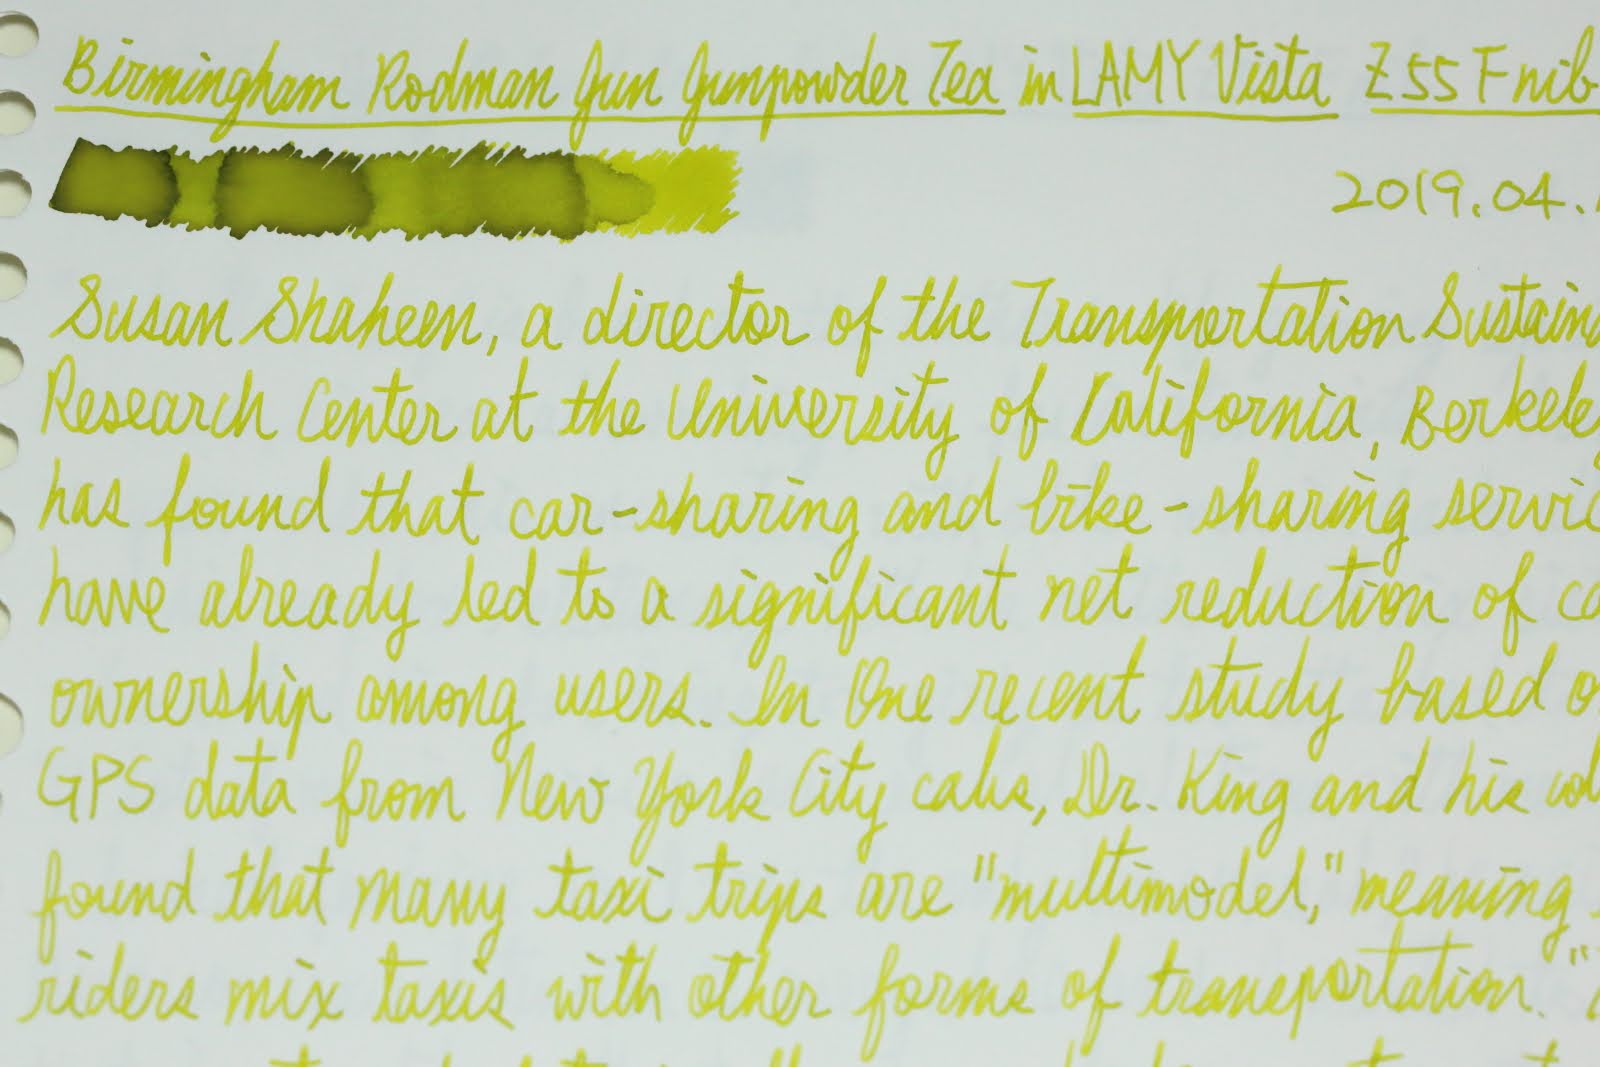 Birmingham Rodman Gun Gunpowder Tea in LAMY Vista Z55 F nib
2019.04.
Susan Shaheen, a director of the Transportation Sustain
Research Center at the University of California, Berkeley
has found that car-sharing and bike-sharing servic
have already led to a significant net reduction of ca
ownership among users. In One recent study based o
GPS data from New York City cabs, Dr. King and his col
found that many taxi trips are "multimodel," meaning
riders mix taxis with other forms of transportation. "